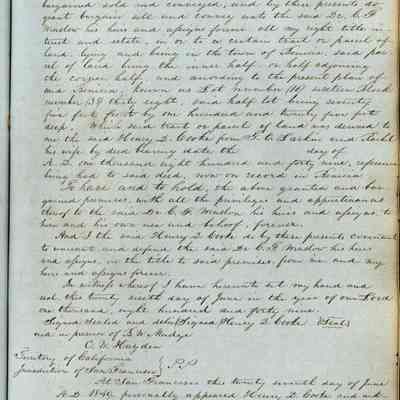 bargained sold and conveyed, and by these presents do
grant bargain sell and convey unto the said Dr. C. F.
his heirs and assigns forever all my right title in
trust and estate, in or to a certain tract or parcel of
land lying and being in the town of Benicia, said par
cel of land being the inner half or half adjoining
the corner half, and according to the present plan of
said Benicia, known as Lot number
number 38 thirty eight, said half lot being seventy
five feet front by one hundred and twenty five feet
deep; Which said tract or parcel of land was deeded to
me the said Henry D. Cooke from
his wife by deed bearing date the day of
A.D. one thousand eight hundred and forty nine, reference
being had to said deed, now on record in Benicia
To have and to hold, the above granted and bar
gained premises, with all the privileges and appurtenances
thereof to the said Dr C. F. his heirs and assigns, to
him and his own use and behoof, forever.
And I the said Henry D. Cooke do by these presents covenant
to warrant and defend the said Dr C. F. his heirs
and assigns, in the title to said premises, from me and my
heirs and assigns forever.
In witness whereof I have hereunto set my hand and
seal this twenty sixth day of June in the year of our Lord
one thousand, eight hundred and forty nine.
Signed Sealed and deliv Signed Henry D. Cooke (Seal)
ed in presence of
C. V. Hayden
Territory of California
Jurisdiction of San Francisco } SS
At San Francisco this twenty seventh day of June
A.D. 1849, personally appeared Henry D. Cooke and